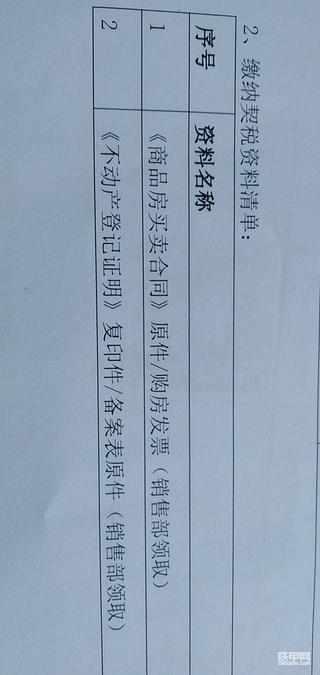 2、缴纳契税资料清单：
序号 资料名称
1 《商品房买卖合同》原件/购房发票（销售部领取）
2 《不动产登记证明》复印件/备案表原件（销售部领取）
铁甲网